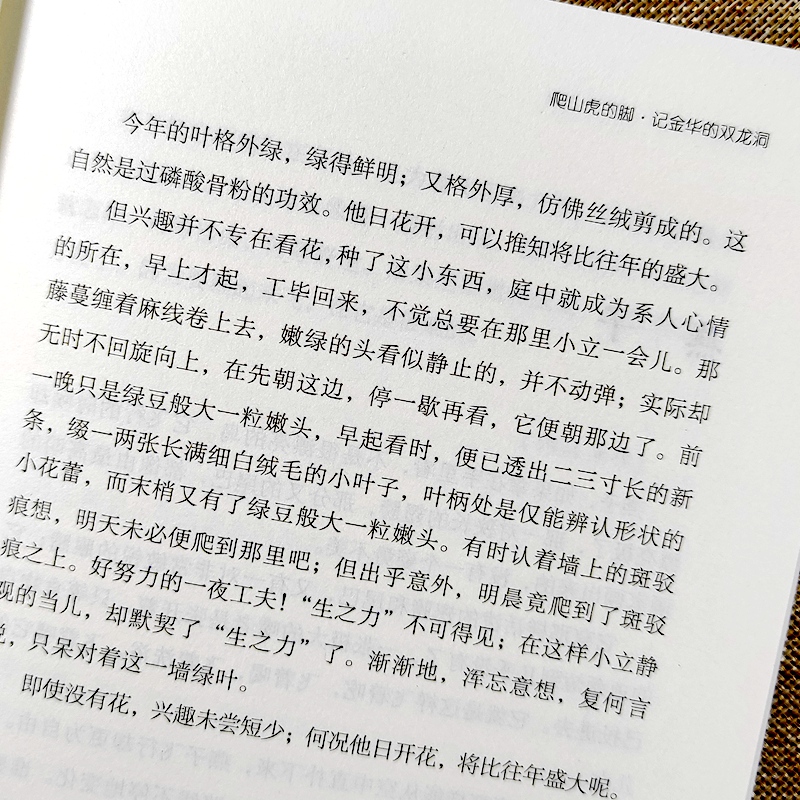 爬山虎的脚·记金华的双龙洞
今年的叶格外绿，绿得鲜明；又格外厚，仿佛丝绒剪成的。这
自然是过磷酸骨粉的功效。他日花开，可以推知将比往年的盛大。
但兴趣并不专在看花，种了这小东西，庭中就成为系人心情
的所在，早上才起，工毕回来，不觉总要在那里小立一会儿。那
藤蔓缠着麻线卷上去，嫩绿的头看似静止的，并不动弹；实际却
无时不回旋向上，在先朝这边，停一歇再看，它便朝那边了。前
一晚只是绿豆般大一粒嫩头，早起看时，便已透出二三寸长的新
条，缀一两张长满细白绒毛的小叶子，叶柄处是仅能辨认形状的
小花蕾，而末梢又有了绿豆般大一粒嫩头。有时认着墙上的斑驳
痕想，明天未必便爬到那里吧；但出乎意外，明晨竟爬到了斑驳
痕之上。好努力的一夜工夫！“生之力”不可得见；在这样小立静
观的当儿，却默契了“生之力”了。渐渐地，浑忘意想，复何言
说，只呆对着这一墙绿叶。
即使没有花，兴趣未尝短少；何况他日开花，将比往年盛大呢。